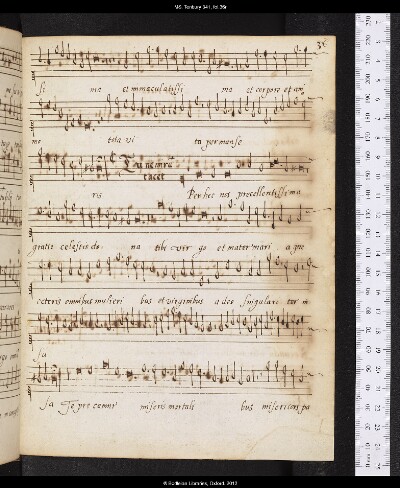 MS. Tenbury 341, fol.36r
36
si ma et immaculatissi ma et corpore et ani
me tota vi ta permanse
tacet
ris Per hec nos precellentissima
gratie celestis do na tibi virgo et mater mari a pre
ceteris omnibus mulieri bus et virginibus a deo singulari ter in
sa
sa Te pre camur miseris mortali bus misericors pa
© Bodleian Libraries, Oxford, 2012